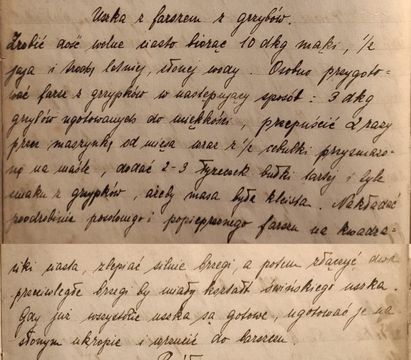 Uszka z farszem z grzybów.
Zrobić dość wolne ciasto biorąc 10 dkg mąki, 1/2
jaja i trochę letniej, słonej wody. Osobno przygoto-
wać farsz z grzybków w następujący sposób: 3 dkg
grzybów ugotowanych do miękkości, przepuścić 2 razy
przez maszynkę od mięsa wraz z 1/2 cebulki przysmażo-
nej na maśle, dodać 2-3 łyżeczek bułki tartej i tyle
smaku z grzybków, ażeby masa była kleista. Nakładać
podrobinie posolonego i popieprzonego farszu na kwadra-
ciki ciasta, zlepiać silnie brzegi, a potem złączyć dwa
przeciwległe brzegi by miały kształt świńskiego uszka.
Gdy już wszystkie uszka są gotowe, ugotować je na
słonym ukropie i wrzucić do barszczu.